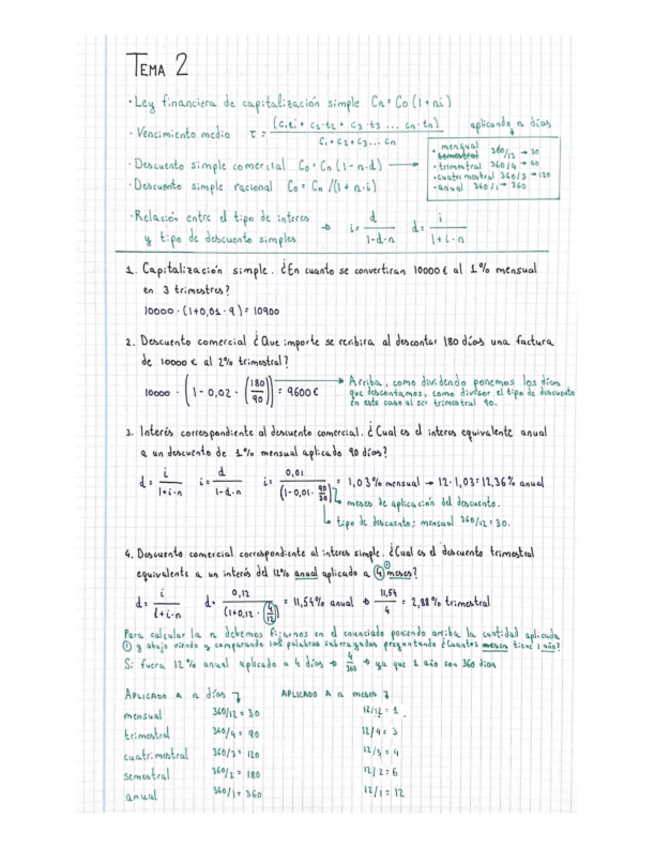 TEMA 2
· Ley financiera de capitalización simple Cn = Co (1+ni)
· Vencimiento medio τ = (C1·t1 + C2·t2 + C3·t3 ... Cn·tn) / C1+C2+C3...Cn
aplicando n días
· mensual 360/12 → 30
· trimestral 360/4 → 90
· cuatrimestral 360/3 → 120
· anual 360/1 → 360
· Descuento simple comercial Co = Cn (1-n·d)
· Descuento simple racional Co = Cn /(1+n·i)
· Relación entre el tipo de interes
y tipo de descuento simples → i = d / 1-d·n d = i / 1+i·n
1. Capitalización simple. ¿En cuanto se convertiran 10000 € al 1% mensual
en 3 trimestres?
10000 · (1+0,01 · 9) = 10900
2. Descuento comercial ¿Que importe se recibira al descontar 180 días una factura
de 10000 € al 2% trimestral?
10000 · (1 - 0,02 · (180/90)) = 9600 €
→ Arriba, como dividendo ponemos los días
que descontamos, como divisor el tipo de descuento
en este caso al ser trimestral 90.
3. Interés correspondiente al descuento comercial. ¿Cual es el interes equivalente anual
a un descuento de 1% mensual aplicado 90 días?
d = i / 1+i·n i = d / 1-d·n i = 0,01 / (1-0,01· 90/30) = 1,03% mensual → 12·1,03 = 12,36% anual
↳ meses de aplicación del descuento.
↳ tipo de descuento; mensual 360/12 = 30.
4. Descuento comercial correspondiente al interes simple. ¿Cual es el descuento trimestral
equivalente a un interés del 12% anual aplicado a 4 meses?
d = i / 1+i·n d = 0,12 / (1+0,12 · 4/12) = 11,54% anual → 11,54 / 4 = 2,88% trimestral
Para calcular la n debemos fijarnos en el enunciado poniendo arriba la cantidad aplicada
① y abajo viendo y comparando las palabras subrayadas preguntando ¿Cuantos meses tiene 1 año?
Si fuera 12% anual aplicado a 4 días → 4/360 → ya que 1 año son 360 dias
APLICADO A n días APLICADO A n meses
mensual 360/12 = 30 12/12 = 1
trimestral 360/4 = 90 12/4 = 3
cuatrimestral 360/3 = 120 12/3 = 4
semestral 360/2 = 180 12/2 = 6
anual 360/1 = 360 12/1 = 12